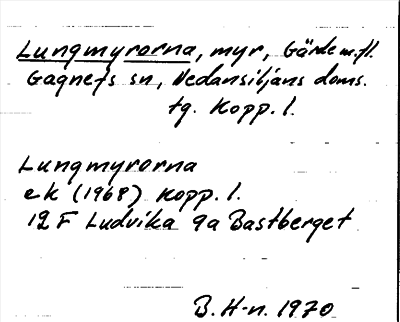 Lungmyrorna, myr, Gärde m.fl.
Gagnefs sn, Nedansiljans doms.
tg. Kopp. l.
Lungmyrorna
ek (1968) Kopp. l.
12 F Ludvika 9a Bastberget
B. H-n. 1970